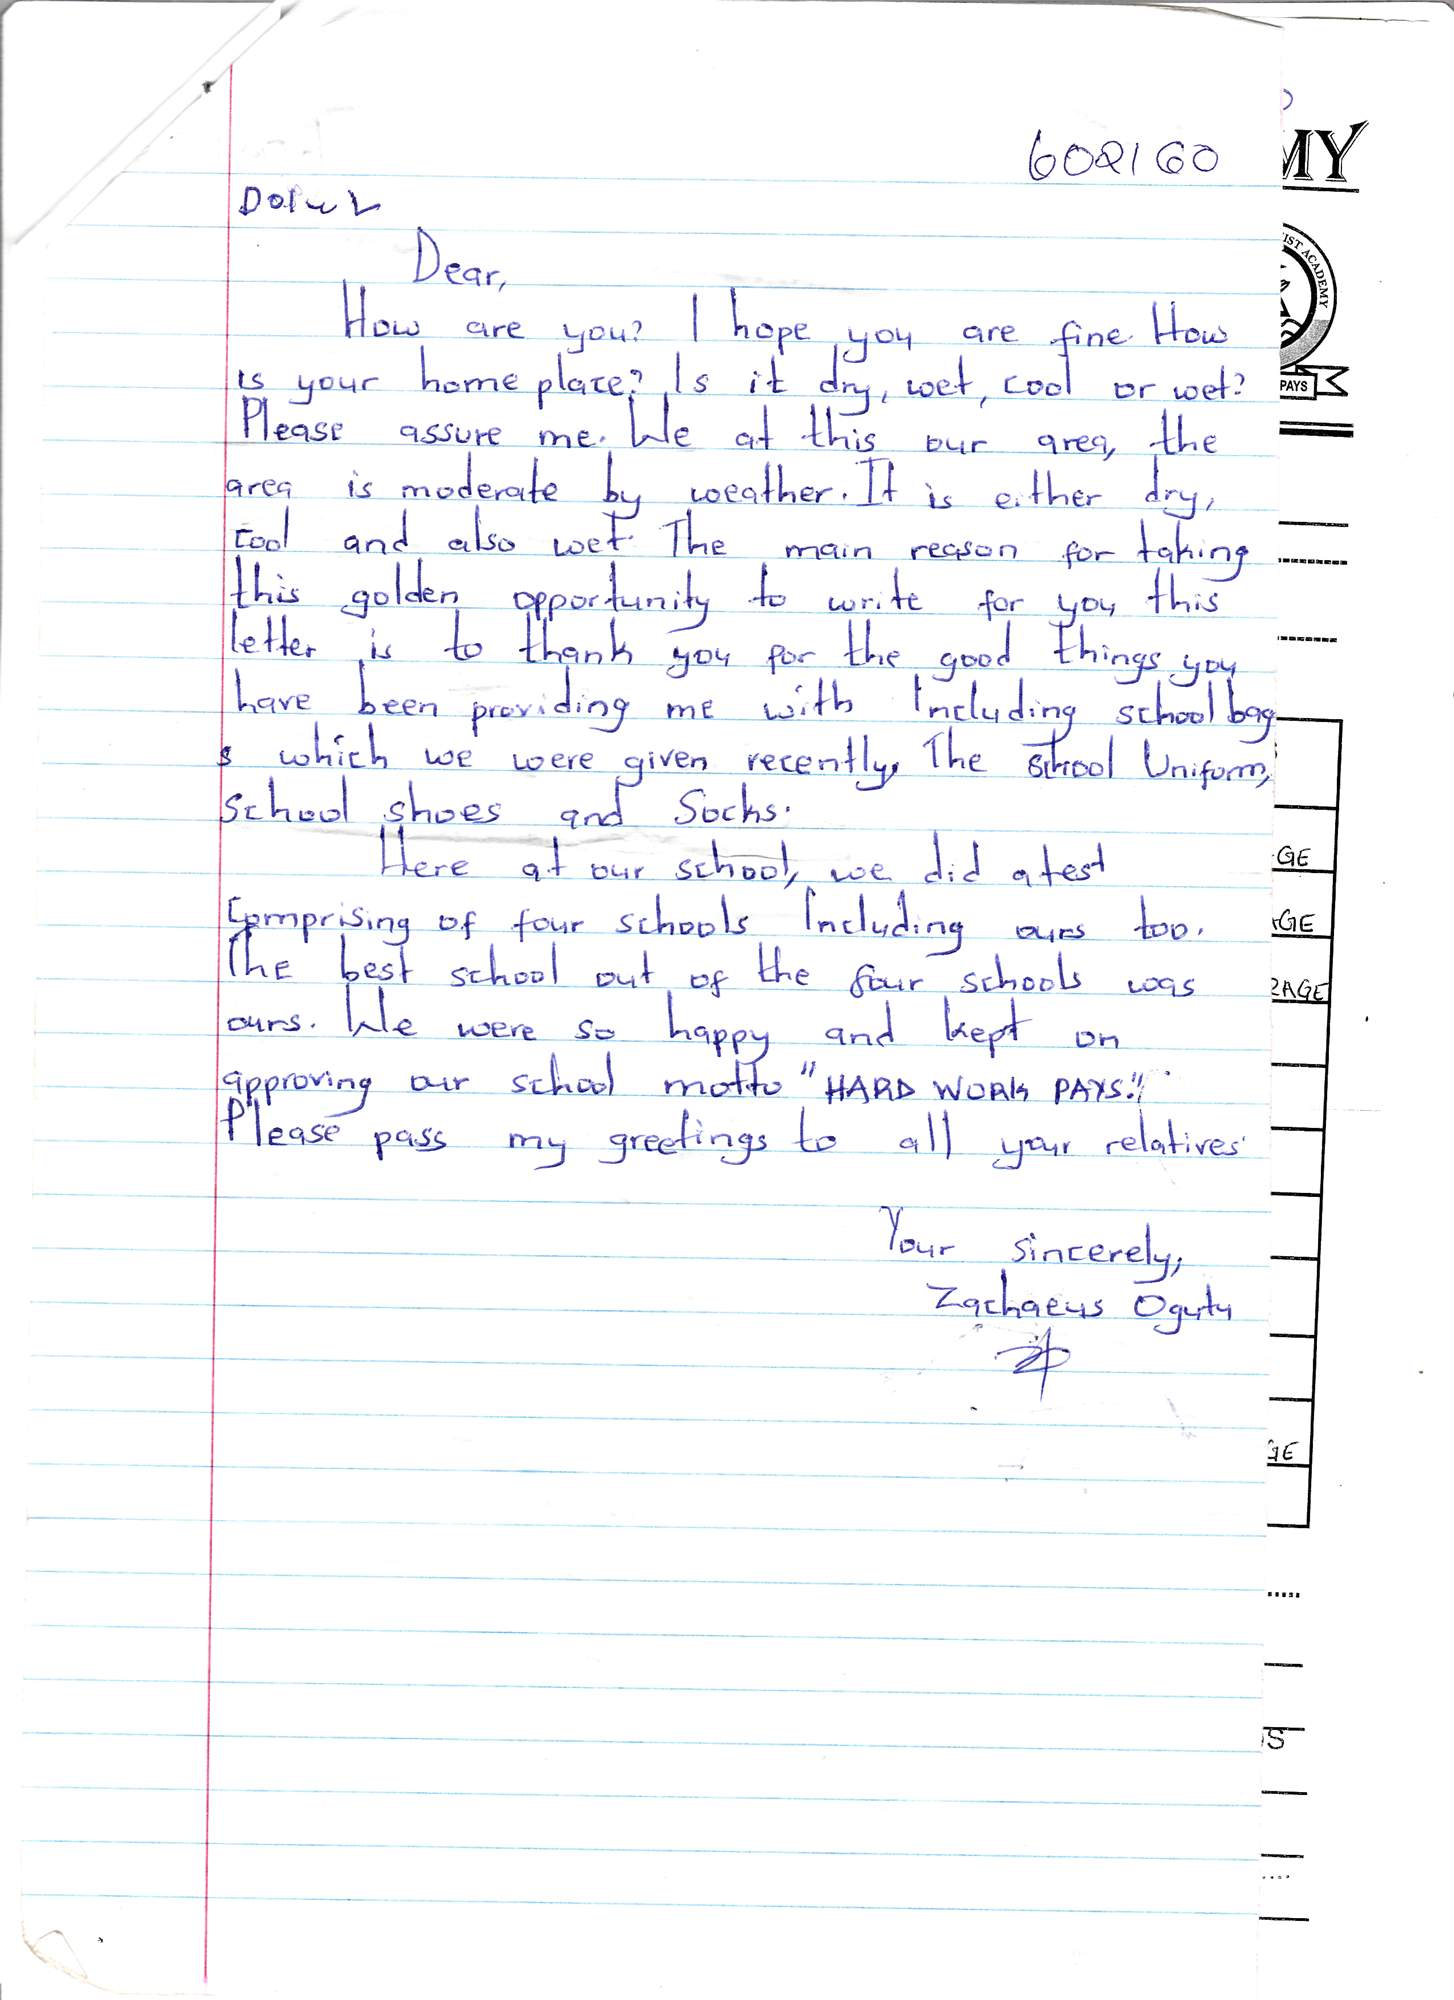 602160
MY
Dear,
How are you? I hope you are fine. How
is your home place? Is it dry, wet, cool or wet?
Please assure me. We at this our area, the
area is moderate by weather. It is either dry,
cool and also wet. The main reason for taking
this golden opportunity to write for you this
letter is to thank you for the good things you
have been providing me with Including school bag
s which we were given recently, The school Uniform,
school shoes and Socks.
Here at our school, we did a test
comprising of four schools Including ours too.
The best school out of the four schools was
ours. We were so happy and kept on
approving our school motto "HARD WORK PAYS."
Please pass my greetings to all your relatives.
Your sincerely,
Zachaeus Oguty
IST ACADEMY
PAYS
GE
AGE
RAGE
GE
S